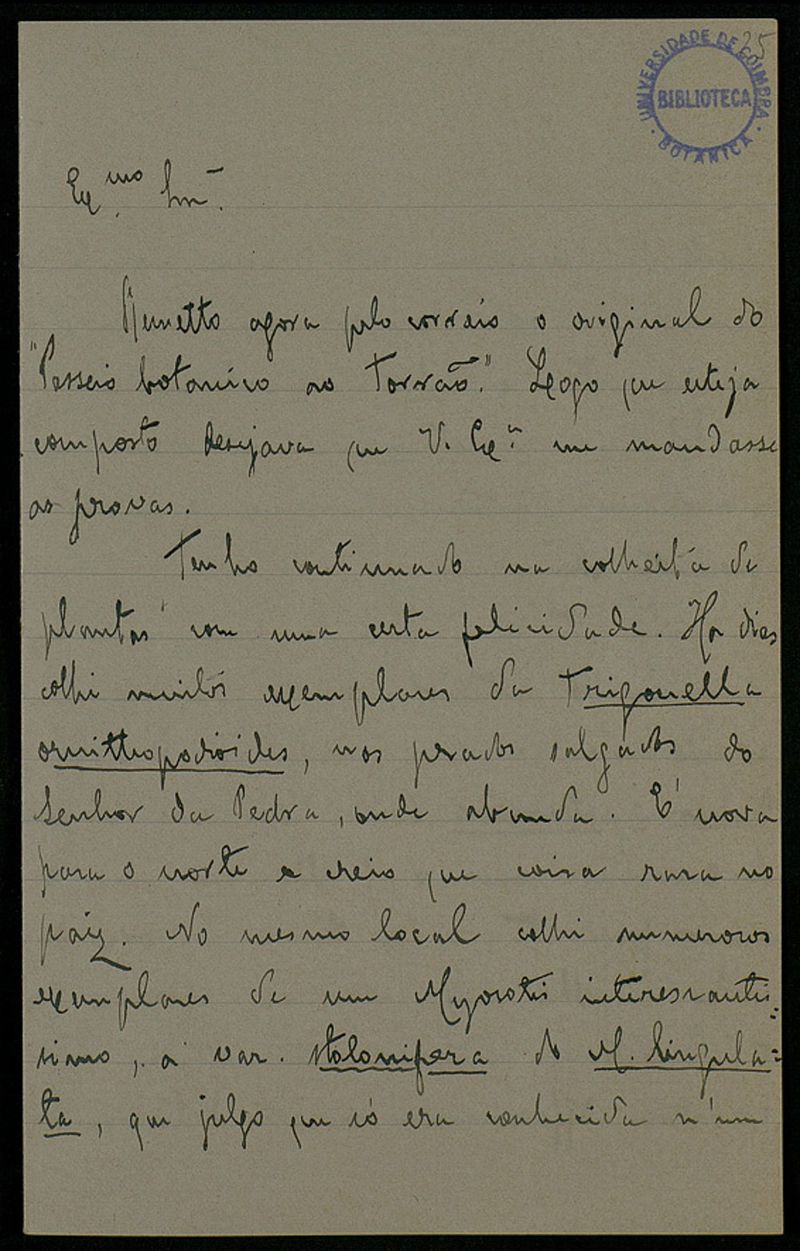 25
UNIVERSIDADE DE COIMBRA
BIBLIOTECA
BOTANICA
Ex.mo Snr.
Remetto agora pelo correio o original do
"Passeio botanico ao Torrão." Logo que esteja
composto desejava que V. Ex.a me mandasse
as provas.
Tenho continuado na colheita de
plantas com uma certa felicidade. Ha dias
colhi muitos exemplares da Trigonella
ornithopodioides, nos prados salgados do
Senhor da Pedra, onde abunda. É nova
para o norte e creio que coisa rara no
paiz. No mesmo local colhi numerosos
exemplares de um Myosotis interessantis-
simo, a var. stolonifera do M. lingula-
ta, que julgo que só era conhecida n'um